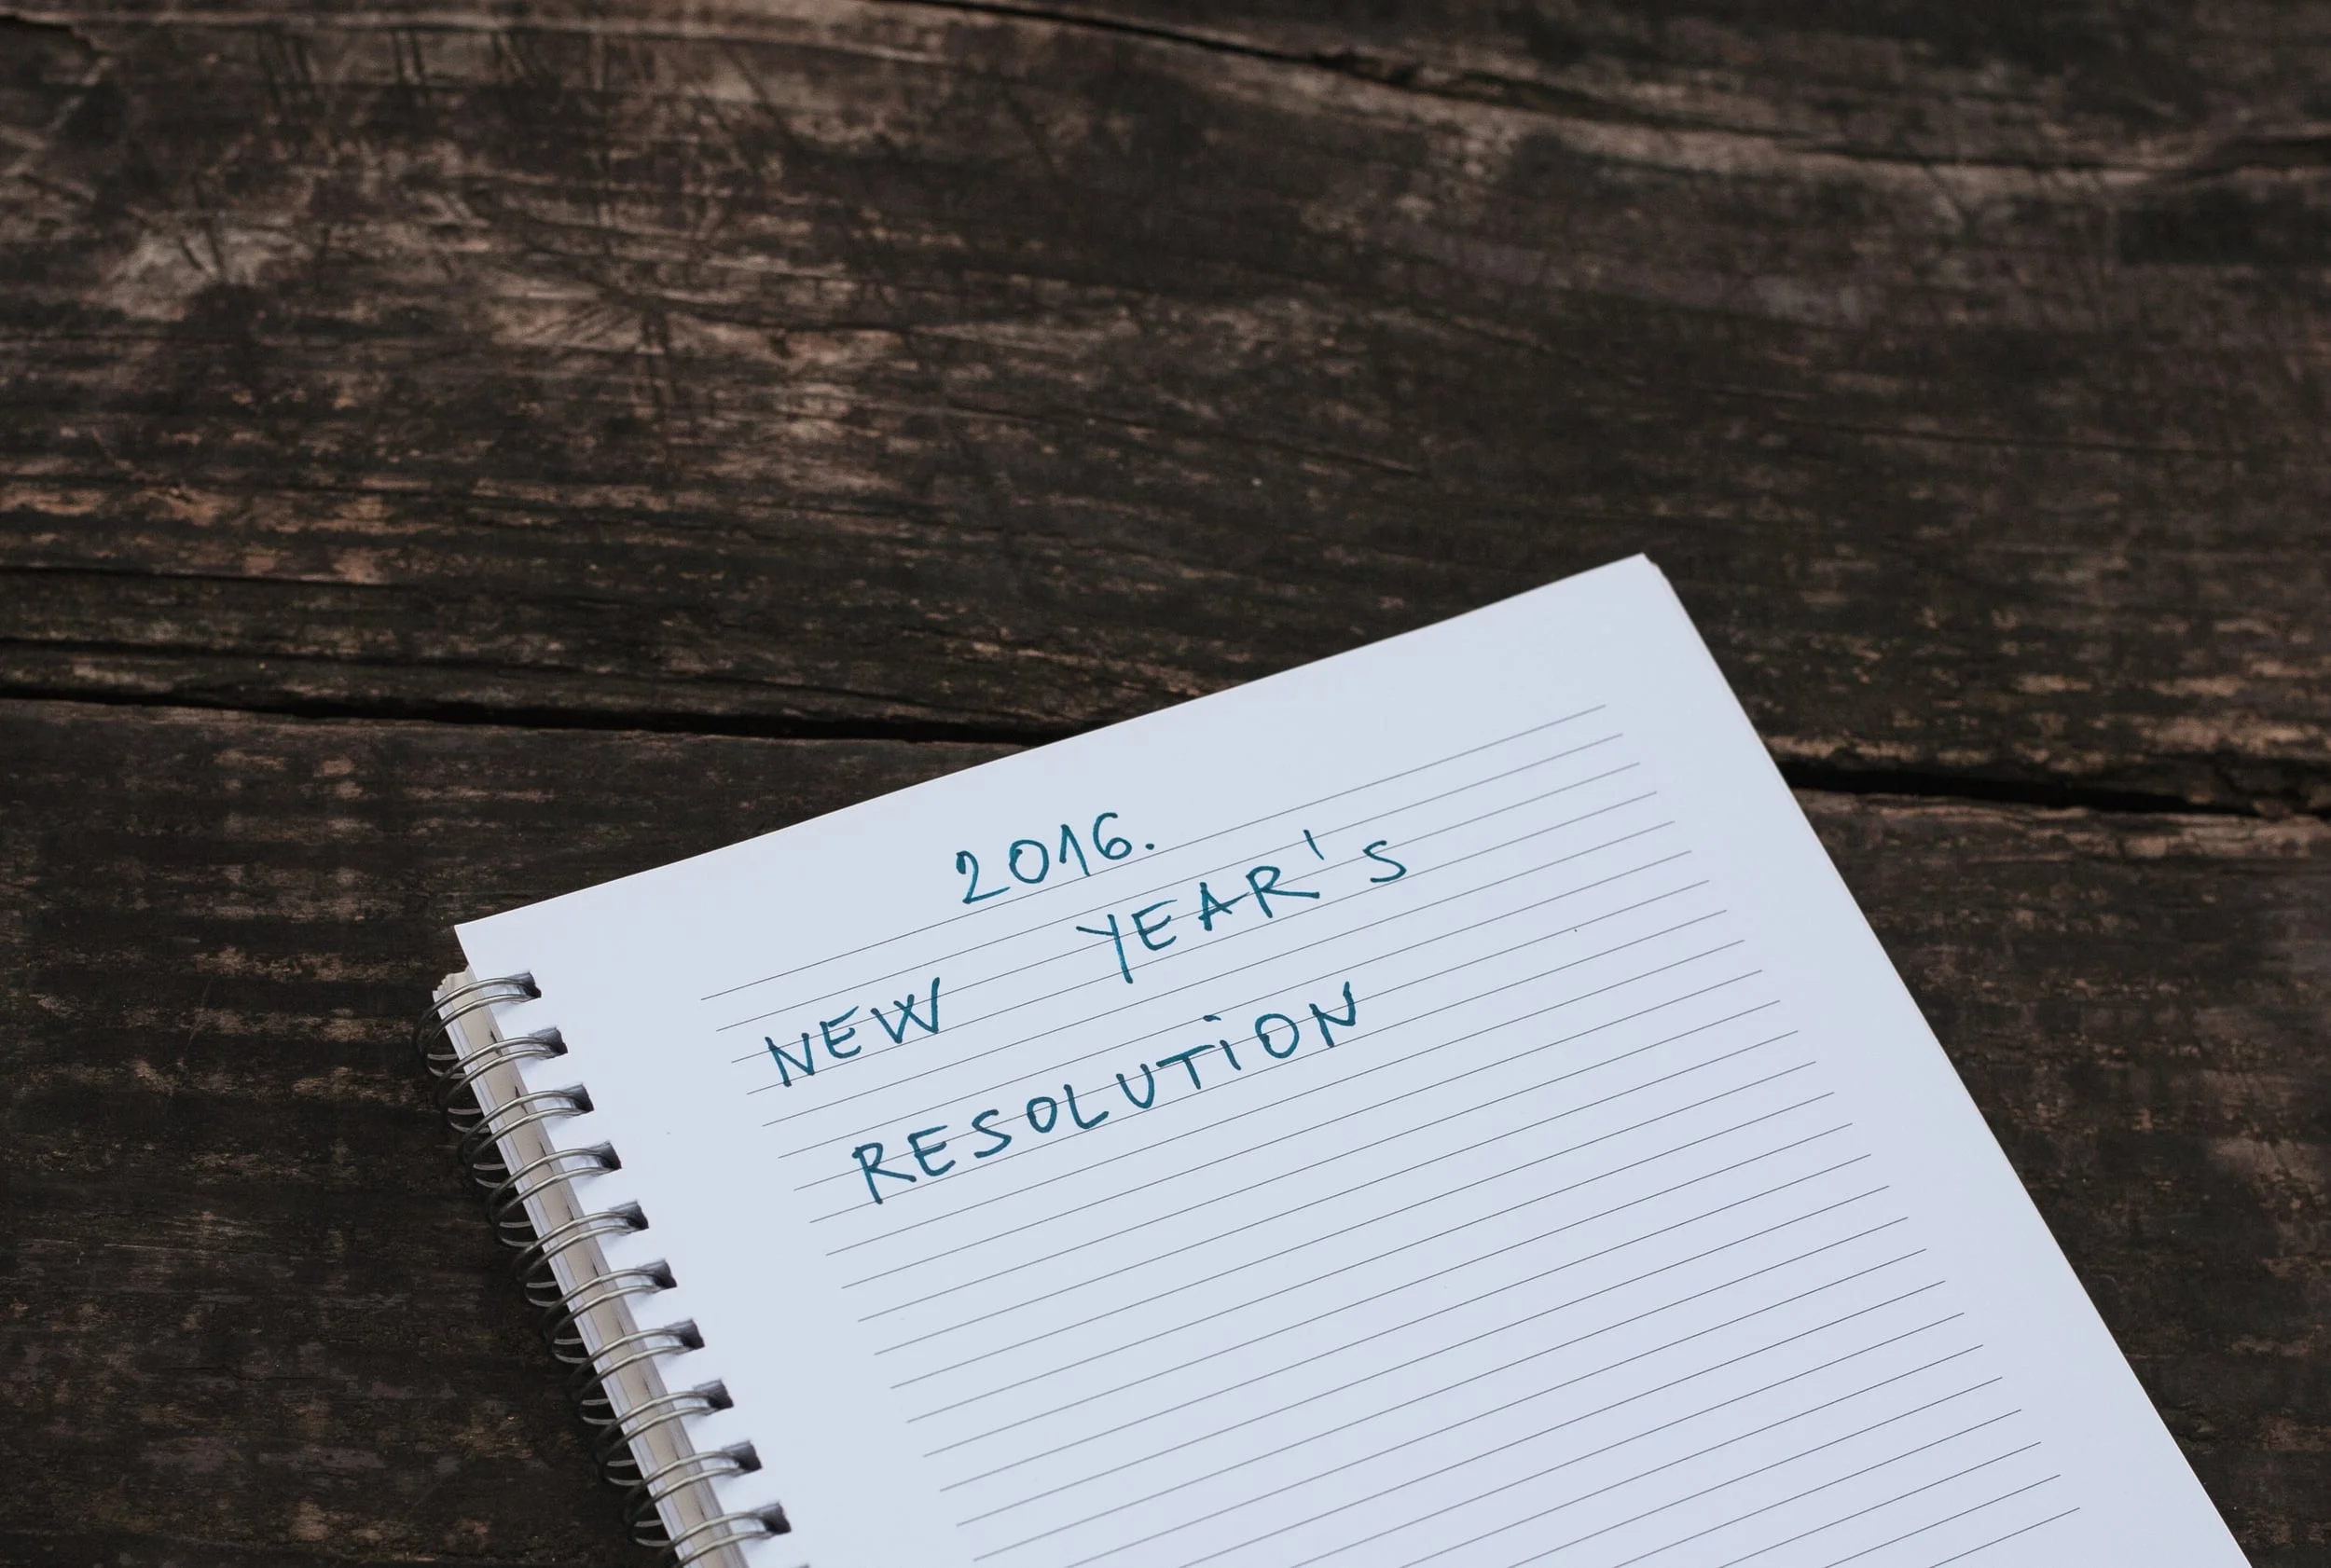 2016.
NEW YEAR'S
RESOLUTiON